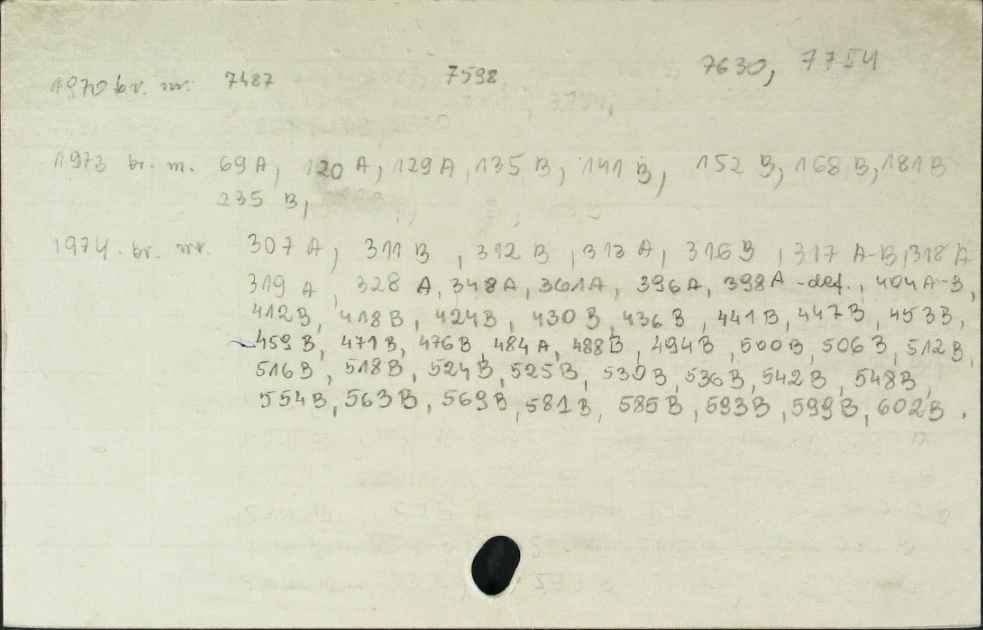 1970 br. nr. 7487 7598 7630, 7754
1973 br. nr. 69 A, 120 A, 129 A, 135 B, 141 B, 152 B, 168 B, 181 B
235 B,
1974. br. nr. 307 A, 311 B, 312 B, 313 A, 316 B, 317 A-B, 318 A
319 A, 328 A, 348 A, 361 A, 396 A, 398 A -def., 404 A-B,
412 B, 418 B, 424 B, 430 B, 436 B, 441 B, 447 B, 453 B,
459 B, 471 B, 476 B, 484 A, 488 B, 494 B, 500 B, 506 B, 512 B,
516 B, 518 B, 524 B, 525 B, 530 B, 536 B, 542 B, 548 B,
554 B, 563 B, 569 B, 581 B, 585 B, 593 B, 599 B, 602 B.